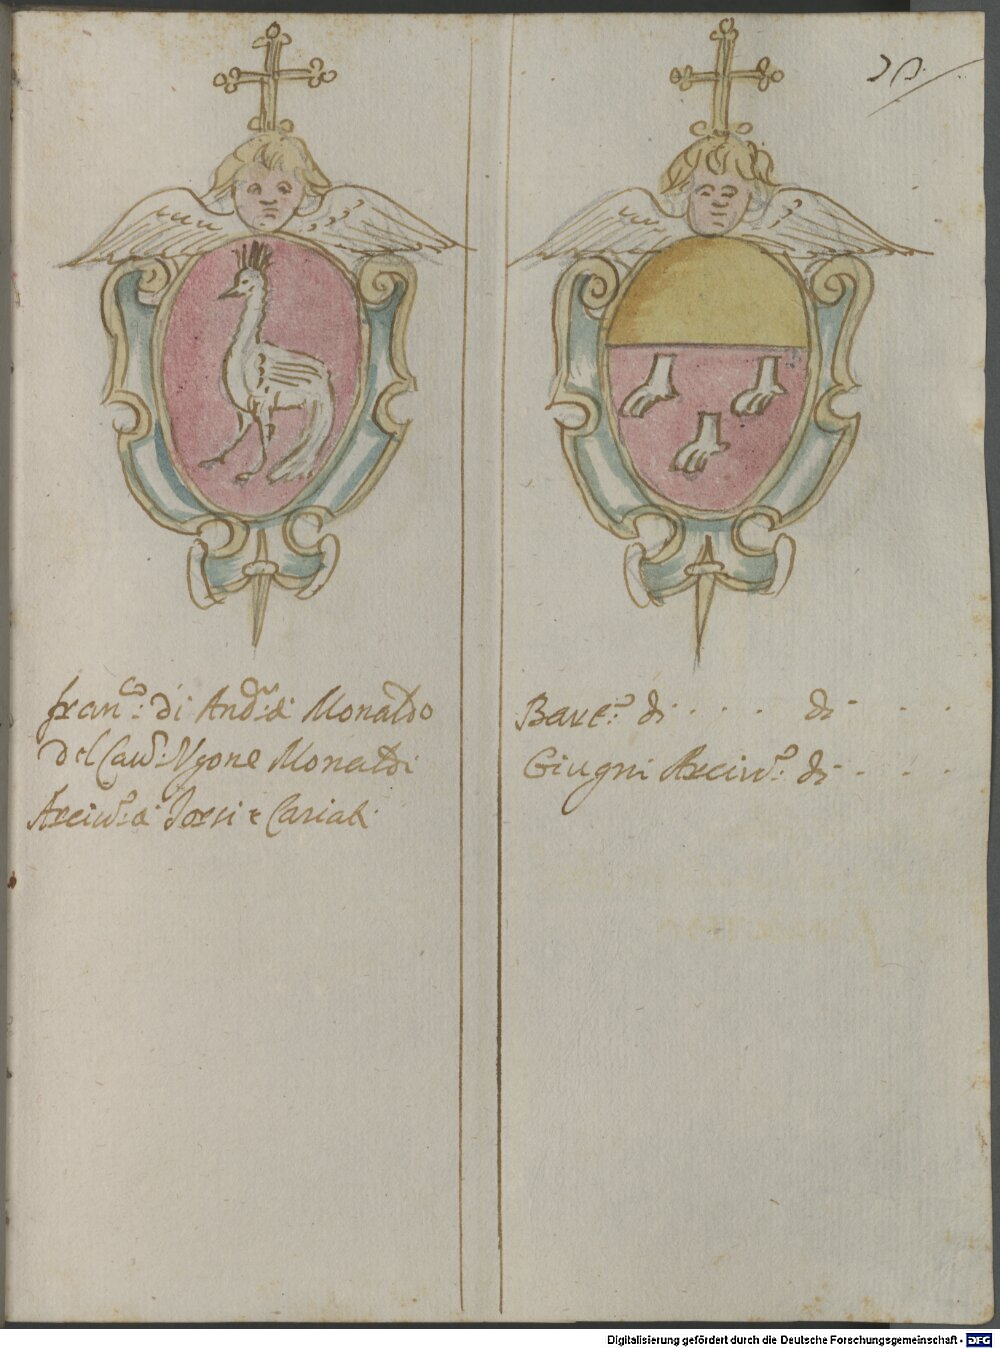 franc.º: di And.ª di Monaldo
del Cav: Ugone Monaldi
Arciv.º di Torri e Cariati
Barc.º di . . . . di . . . .
Giugni Arciv.º di . . . .
Digitalisierung gefördert durch die Deutsche Forschungsgemeinschaft - DFG